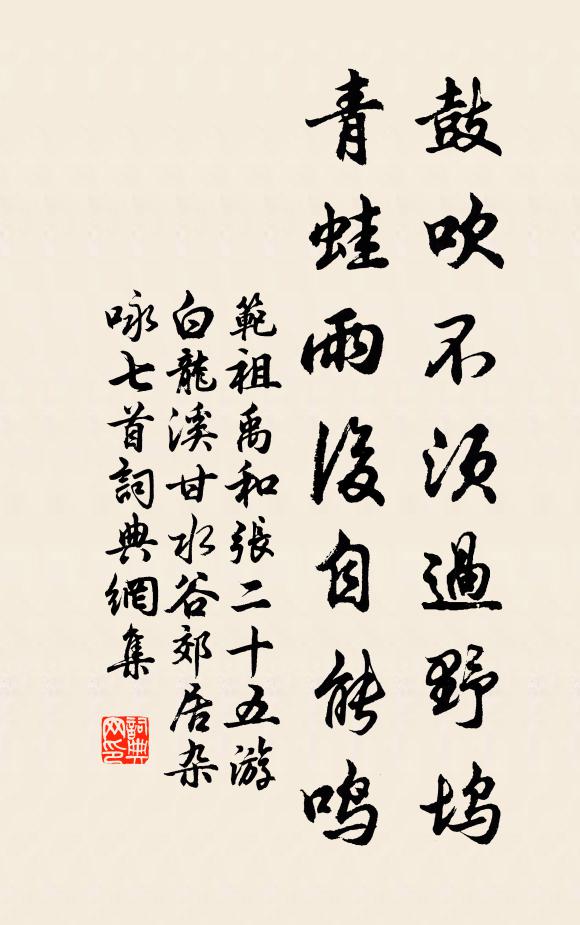 鼓吹不須過野塢
青蛙雨後自能鳴
範祖禹和張二十五游
白龍溪甘水谷郊居杂
咏七首詞典網集
詞典網印